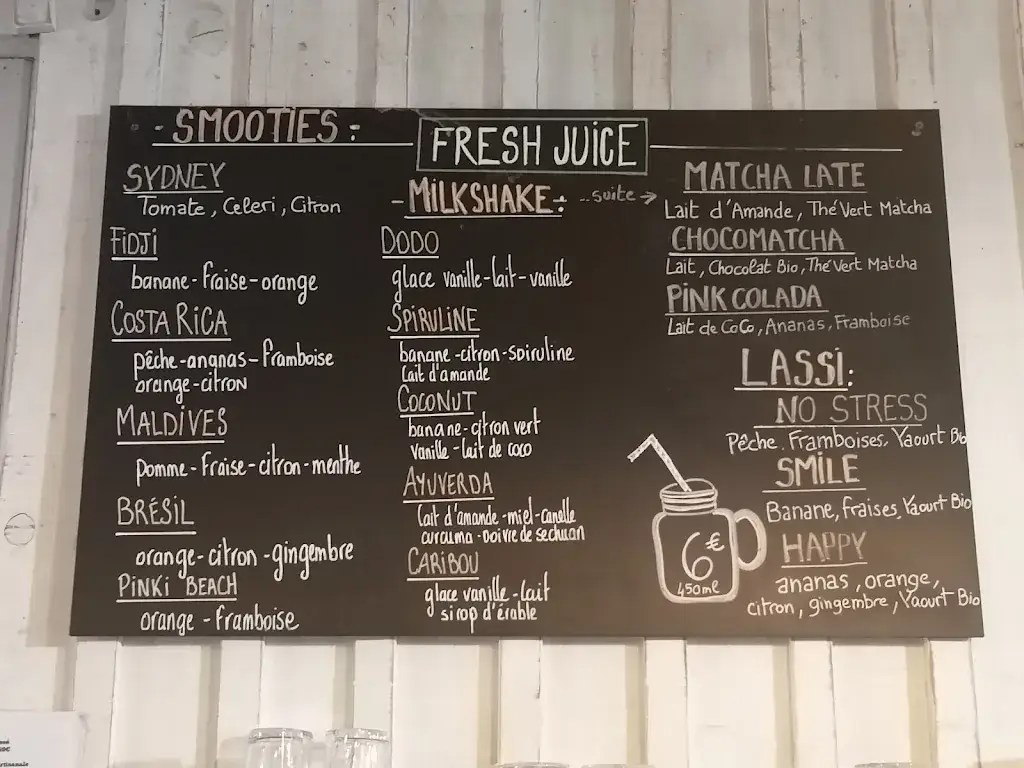 FRESH JUICE
- SMOOTIES :
SYDNEY
Tomate, Celeri, Citron
FIDJI
banane - fraise - orange
COSTA RICA
pêche - ananas - framboise
orange - citron
MALDIVES
pomme - fraise - citron - menthe
BRÉSIL
orange - citron - gingembre
PINKI BEACH
orange - framboise
- MILKSHAKE :- ...suite →
DODO
glace vanille - lait - vanille
SPIRULINE
banane - citron - spiruline
lait d'amande
COCONUT
banane - citron vert
vanille - lait de coco
AYUVERDA
lait d'amande - miel - canelle
curcuma - poivre de sechuan
CARIBOU
glace vanille - lait
sirop d'érable
MATCHA LATE
Lait d'Amande, Thé Vert Matcha
CHOCOMATCHA
Lait, Chocolat Bio, Thé Vert Matcha
PINK COLADA
Lait de CoCo, Ananas, Framboise
LASSI:
NO STRESS
Pêche, Framboises, Yaourt Bio
SMILE
Banane, fraises, Yaourt Bio
HAPPY
ananas, orange,
citron, gingembre, Yaourt Bio
6€
450ml